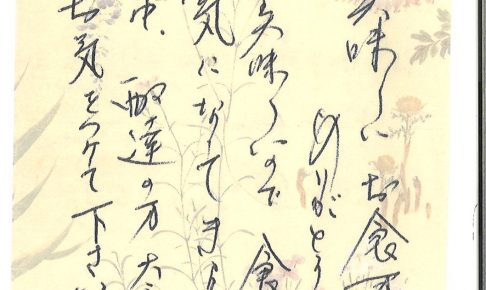 美味しいお食事
ありがとう
美味しいので 食
気になってきま
中、配達の方 大
お気をつけて下さい